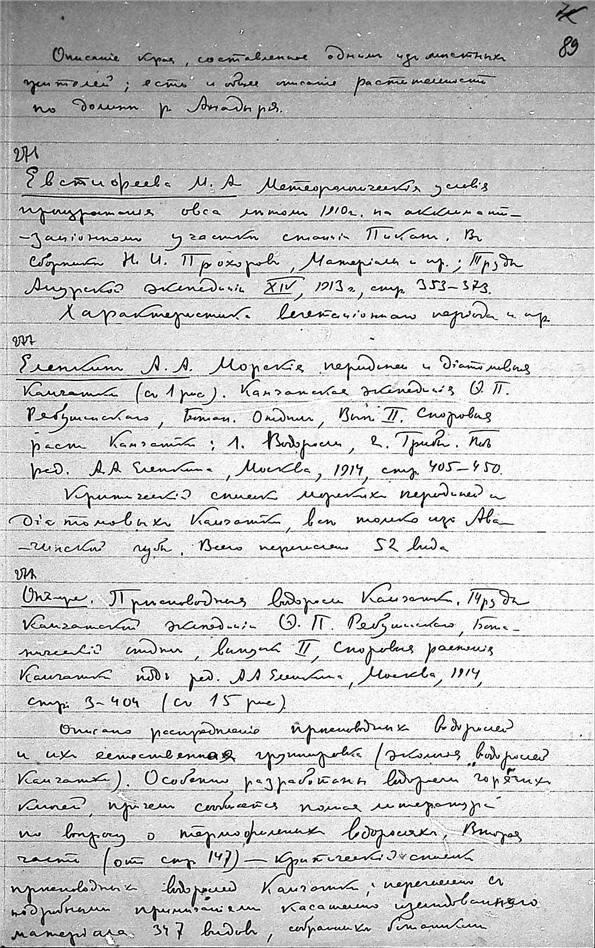 89
Описанiе края, составленное однимъ изъ местныхъ
жителей; есть и общее описанiе растительности
по долине р. Анадыря.
271
Евстифеева М. А. Метеорологическiя условiя
произрастанiя овса летомъ 1910г. на акклимат-
-зацiонномъ участке станцiи Пикан. Въ
сборнике Н. И. Прохоровъ, Матерiалы и пр.; Труды
Амурской экспедицiи XIV, 1913г, стр. 353–373.
Характеристика вегетацiоннаго перiода и пр
Еленкинъ А. А. Морскiя перидинеи и дiатомовыя
Камчатки (съ 1 рис). Камчатская экспедицiя Ѳ. П.
Рябушинскаго, Ботан. Отделъ, Вып. II. Споровыя
раст Камчатки: 1. Водоросли, 2. Грибы. Подъ
ред. А А Еленкина, Москва, 1914, стр. 405–450.
Критическiй списокъ морскихъ перидиней и
дiатомовыхъ Камчатки, но только изъ Ава-
-чинской губы. Всего перечислено 52 вида
Онъ-же. Пресноводныя водоросли Камчатки. Труды
Камчатской экспедицiи Ѳ. П. Рябушинскаго, Бота-
ническiй отделъ, выпускъ II, Споровыя растенiя
Камчатки подъ ред. А А Еленкина, Москва, 1914,
стр. 3–404 (съ 15 рис)
Описано распределенiе пресноводныхъ водорослей
и ихъ естественная группировка (экологiя водорослей
Камчатки). Особенно разработаны водоросли горячихъ
ключей, причемъ сообщается полная литература
по вопросу о термофильныхъ водоросляхъ. Вторая
часть (от стр 147) – критическiй списокъ
пресноводныхъ водорослей Камчатки; перечислено съ
подробными примечанiями касательно изследованнаго
матерiала 347 видовъ, собранныхъ ботаниками